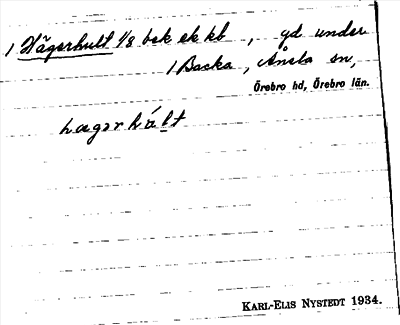 1 Hägerhult 1/8 bsk ek kb, gd under
1 Backa, Ånsta sn,
Örebro hd, Örebro län.
hægərhált
KARL-ELIS NYSTEDT 1934.